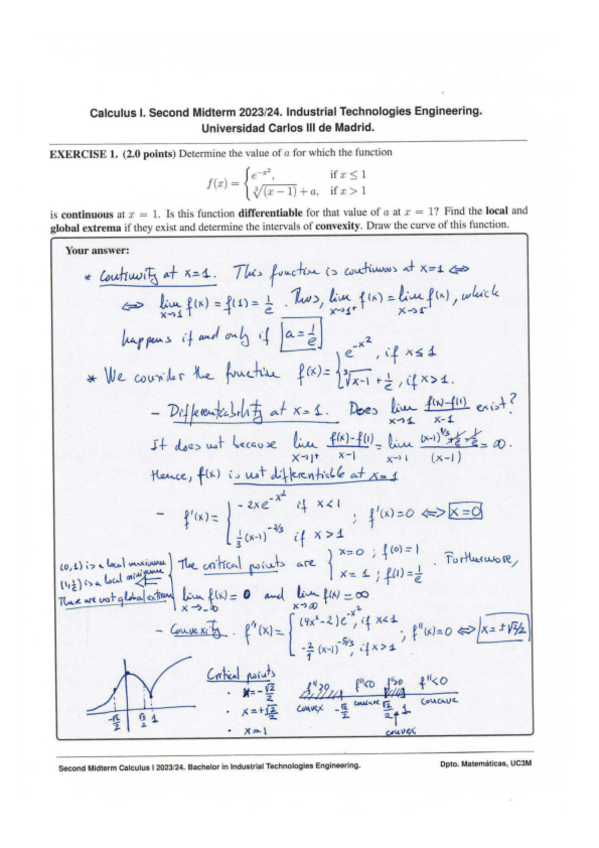 Calculus I. Second Midterm 2023/24. Industrial Technologies Engineering.
Universidad Carlos III de Madrid.
EXERCISE 1. (2.0 points) Determine the value of a for which the function
f(x) = { e^{-x²}, if x ≤ 1
∛(x − 1) + a, if x > 1
is continuous at x = 1. Is this function differentiable for that value of a at x = 1? Find the local and
global extrema if they exist and determine the intervals of convexity. Draw the curve of this function.
Your answer:
* Continuity at x=1. This function is continuous at x=1 ⇔
⇔ lim x→1 f(x) = f(1) = 1/e. Thus, lim x→1⁺ f(x) = lim x→1⁻ f(x), which
happens if and only if a = 1/e
* We consider the function f(x) = { e^{-x²}, if x ≤ 1
∛x-1 + 1/e, if x > 1.
- Differentiability at x=1. Does lim x→1 f(x)-f(1)/x-1 exist?
It does not because lim x→1⁺ f(x)-f(1)/x-1 = lim x→1 (x-1)^{1/3} + 1/e - 1/e/(x-1) = ∞.
Hence, f(x) is not differentiable at x=1
- f'(x) = { -2xe^{-x²} if x<1
1/3 (x-1)^{-2/3} if x>1 ; f'(x)=0 ⇔ x=0
(0,1) is a local maximum
(1,1/e) is a local minimum
There are not global extrema
The critical points are { x=0 ; f(0)=1
x=1 ; f(1)=1/e . Furthermore,
lim x→-∞ f(x) = 0 and lim x→∞ f(x) = ∞
- Convexity. f''(x) = { (4x²-2)e^{-x²}, if x<1
-2/9 (x-1)^{-5/3}, if x>1 ; f''(x)=0 ⇔ x=±√2/2
-√2/2 √2/2 1
Critical points
· x=-√2/2
· x=+√2/2
· x=1
f''>0 f''<0 f''>0 f''<0
convex -√2/2 concave √2/2 1 concave
convex
Second Midterm Calculus I 2023/24. Bachelor in Industrial Technologies Engineering.
Dpto. Matemáticas, UC3M